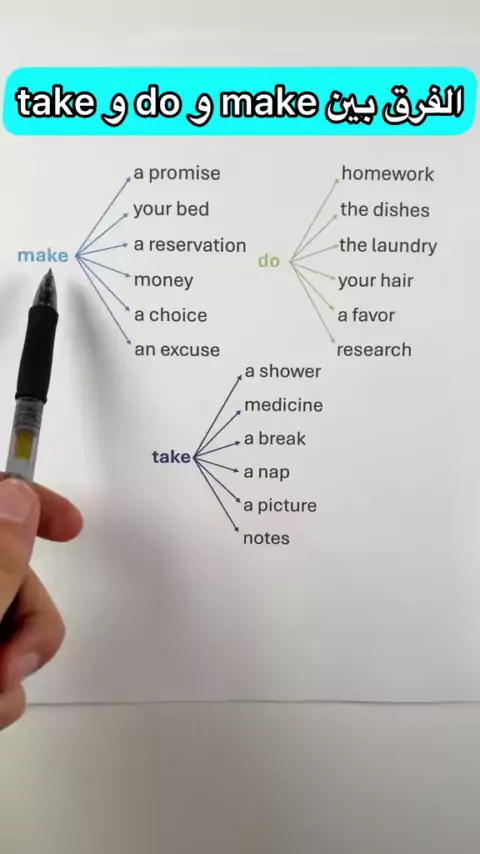 الفرق بين make و do و take
make
a promise
your bed
a reservation
money
a choice
an excuse
do
homework
the dishes
the laundry
your hair
a favor
research
take
a shower
medicine
a break
a nap
a picture
notes